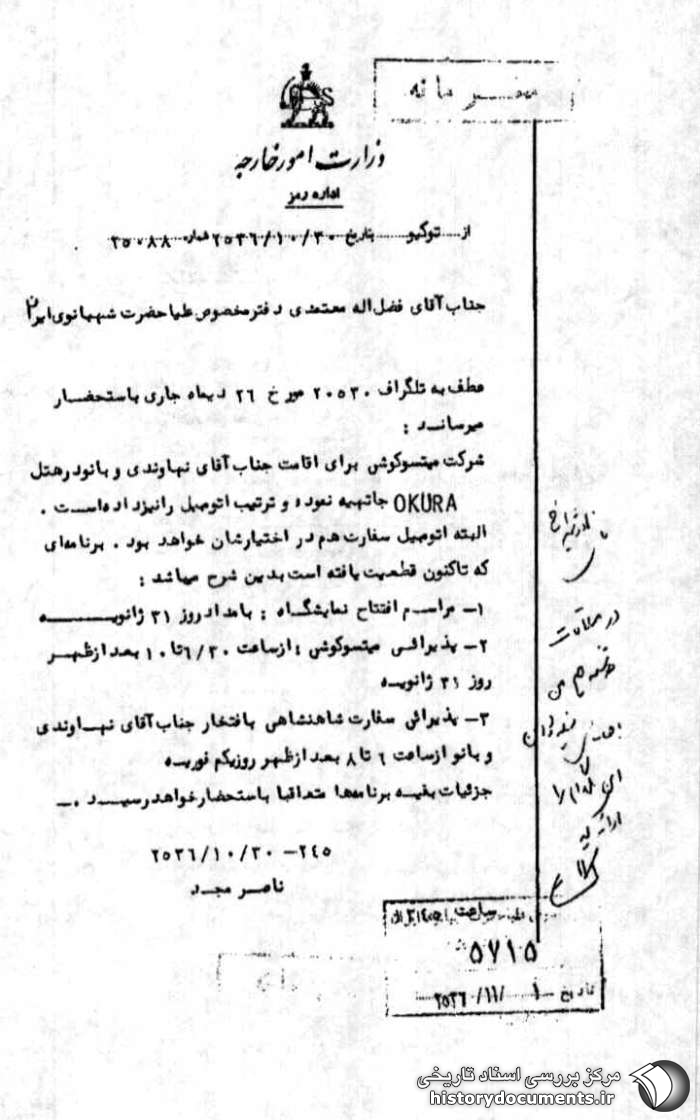 محرمانه
وزارت امور خارجه
اداره رمز
از توکیو بتاریخ ۲۵۳۶/۱۰/۳۰ شماره ۲۵۰۸۸
جناب آقای فضل اله معتمدی دفتر مخصوص علیا حضرت شهبانوی ایران
عطف به تلگراف ۲۰۵۳۰ مورخ ۲۶ دیماه جاری باستحضار
میرساند :
شرکت میتسوکوشی برای اقامت جناب آقای نهاوندی و بانو در هتل
OKURA جا تهیه نموده و ترتیب اتومبیل را نیز داده است .
البته اتومبیل سفارت هم در اختیارشان خواهد بود . برنامه‌ای
که تاکنون قطعیت یافته است بدین شرح میباشد :
۱- مراسم افتتاح نمایشگاه : بامداد روز ۳۱ ژانویه
۲- پذیرائی میتسوکوشی : از ساعت ۶/۳۰ تا ۱۰ بعد از ظهر
روز ۳۱ ژانویه
۳- پذیرائی سفارت شاهنشاهی بافتخار جناب آقای نهاوندی
و بانو از ساعت ۶ تا ۸ بعد از ظهر روز یکم فوریه
جزئیات بقیه برنامه‌ها متعاقبا باستحضار خواهد رسید .-
۲۴۵- ۲۵۳۶/۱۰/۳۰
ناصر مجد
در ملاقات
این
را
ساعت
۵۷۱۵
تاریخ ۲۵۳۶/۱۱/۱
مرکز بررسی اسناد تاریخی
historydocuments.ir